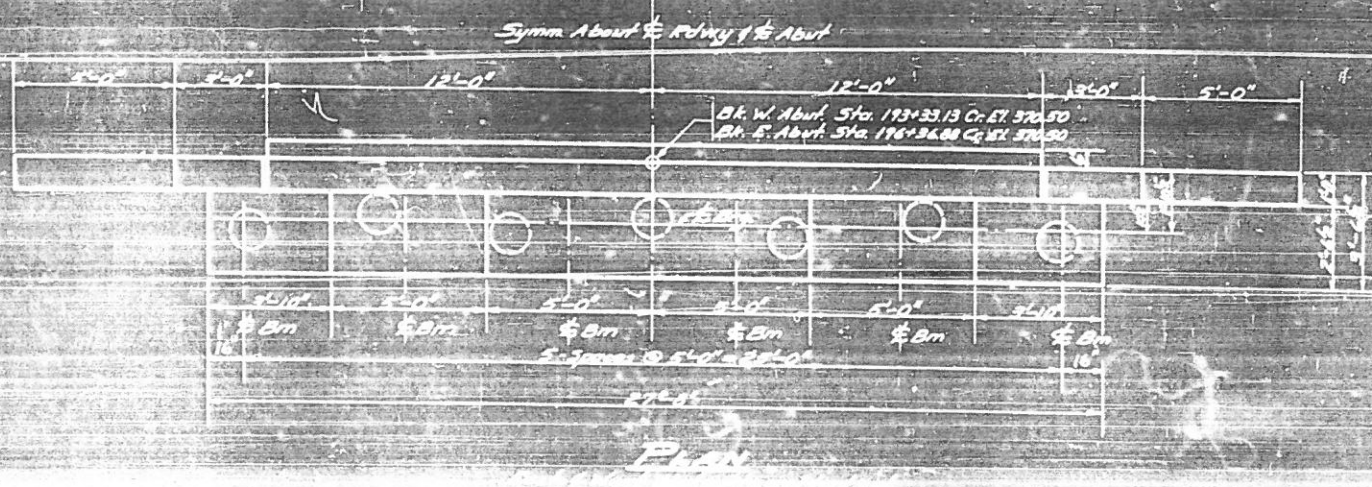 Symm About ℄ Rdwy & ℄ Abut
5'-0" 3'-0" 12'-0" 12'-0" 3'-0" 5'-0"
Bk. W. Abut. Sta. 193+33.13 Cr. El. 370.50
Bk. E. Abut. Sta. 196+36.88 Cr. El. 370.50
℄ Brg.
3'-10" 5'-0" 5'-0" 5'-0" 5'-0" 3'-10"
℄ Bm ℄ Bm ℄ Bm ℄ Bm ℄ Bm ℄ Bm
16" 5-Spaces @ 5'-0" = 25'-0" 16"
27'-8"
PLAN